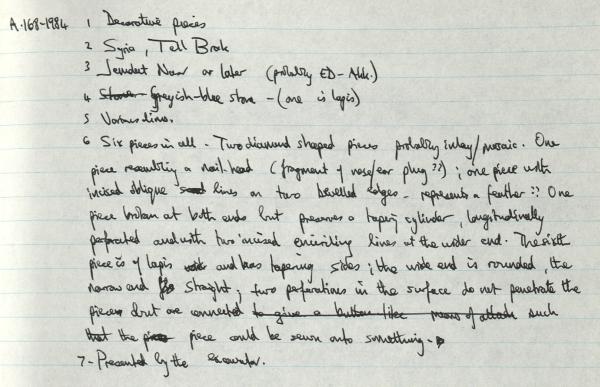 A.168-1984 1 Decorative pieces
2 Syria, Tell Brak
3 Jemdet Nasr or later (probably ED-Akk.)
4 Stone Greyish-blue stone - (one is lapis)
5 Various dims.
6 Six pieces in all - Two diamond shaped pieces probably inlay/mosaic. One
piece resembling a nail-head (fragment of nose/ear plug??) ; one piece with
incised oblique lines on two bevelled edges - represents a feather?? One
piece broken at both ends but preserves a tapering cylinder, longitudinally
perforated and with two incised encircling lines at the wider end. The sixth
piece is of lapis and has tapering sides; the wide end is rounded, the
narrow end straight; two perforations in the surface do not penetrate the
piece but are connected to give a button like means of attach such
that the piece could be sewn onto something.
7 - Presented by the excavator.